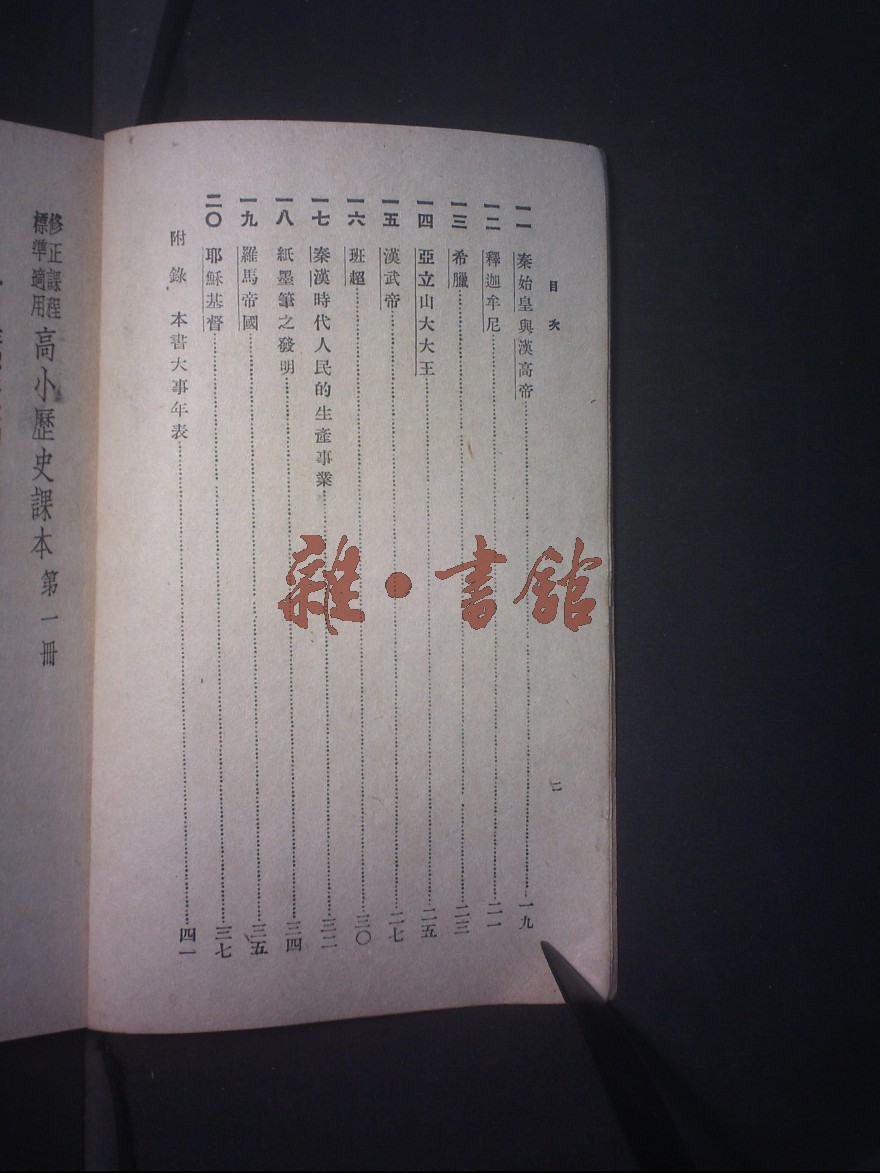 目次
二
一一 秦始皇與漢高帝……一九
一二 釋迦牟尼……二一
一三 希臘……二三
一四 亞立山大大王……二五
一五 漢武帝……二七
一六 班超……三〇
一七 秦漢時代人民的生產事業……三二
一八 紙墨筆之發明……三四
一九 羅馬帝國……三五
二〇 耶穌基督……三七
附錄 本書大事年表……四一
修正課程
標準適用
高小歷史課本 第一冊
雜·書館